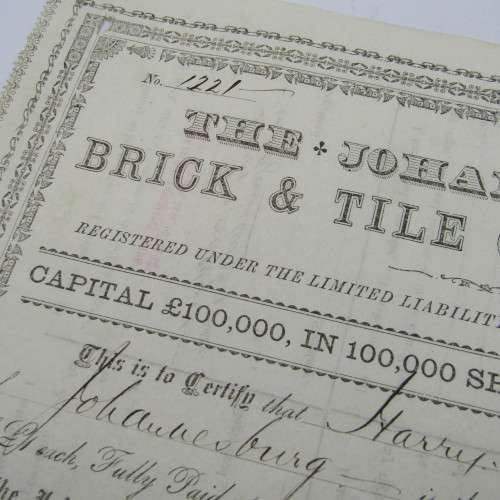 No. 1221
THE JOHA
BRICK & TILE
REGISTERED UNDER THE LIMITED LIABILITY
CAPITAL £100,000, IN 100,000 SH
This is to Certify that Harry
Johannesburg
each, Fully Paid
the